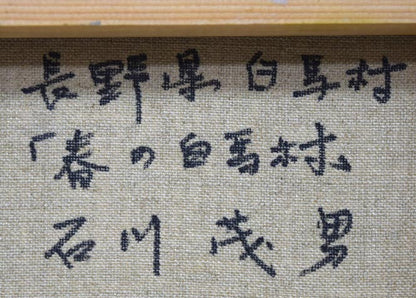 長野県 白馬村
「春の白馬村」
石川 茂男